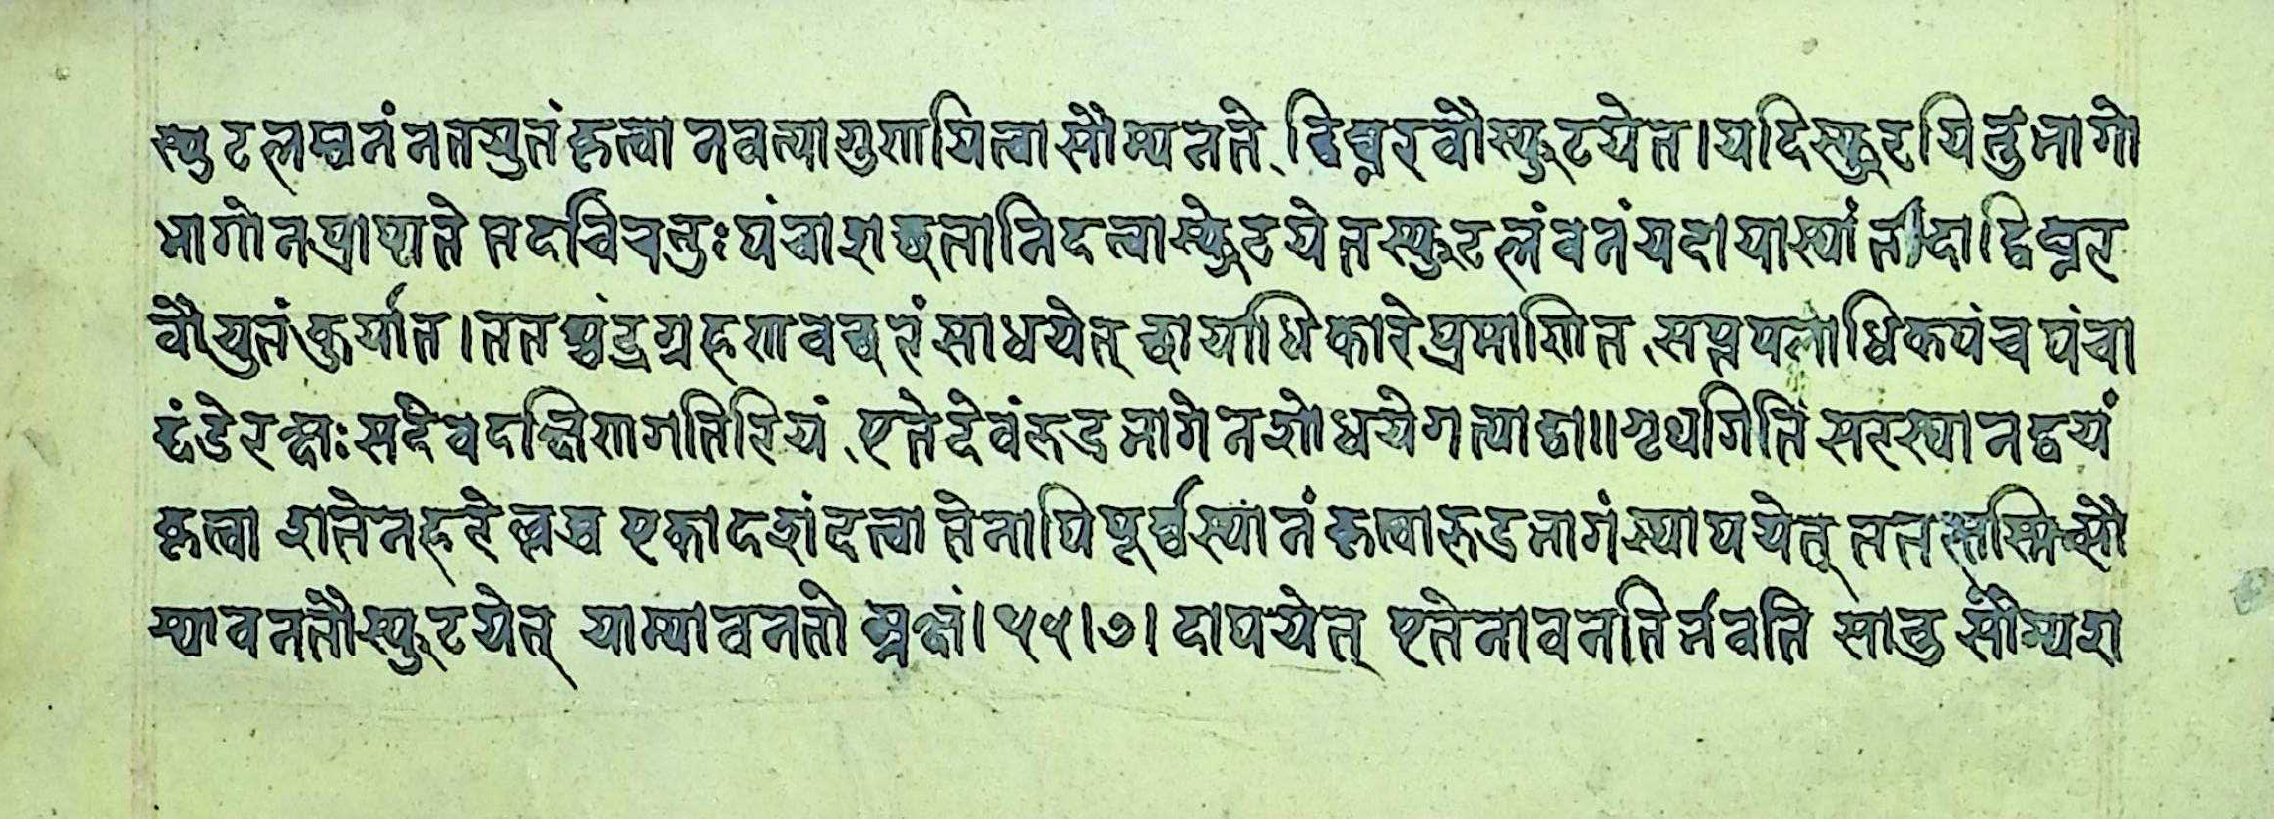 स्फुटलम्बनं नतयुतं कृत्वा नवत्या गुणयित्वा सौम्यनते द्विघ्नरवौ स्फुटयेत। यदि स्फुटयितुं भागो
भागो न प्राप्यते तदर्चिचतुः पंचाशच्छतानि दत्वा स्फुटयेत स्फुटलंबनं यदा याम्यां तदा द्विघ्नर
वौ युतं कुर्यात। ततश्चंद्रग्रहणवच्छरं साधयेत् छायाधिकारे प्रमाणित सप्तपलाधिकपंचपंचा
द्दंडे रक्षः सदैव दक्षिणगतिरियं एते देवं रुद्रभागेन शोधयेगत्याद्वा॥ पृथगिति सरस्थानद्वयं
कृत्वा शतेन हरेल्लब्ध एकादशं दत्वा तेनापि पूर्व्वस्थानं कृत्वा रुद्रभागं स्थापयेत् ततस्तस्मिन्सौ
म्यावनतौ स्फुटयेत् याम्यावनतो ऋक्षं। ५५।७। दापयेत् एतेनावनतिर्भवति सा तु सौम्यश